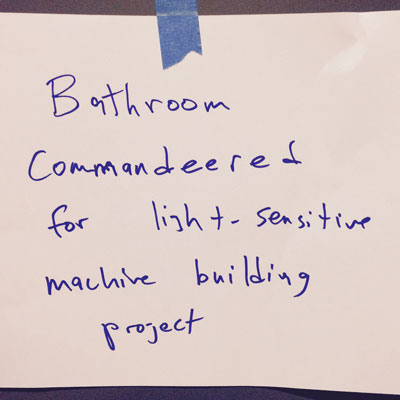 Bathroom
Commandeered
for light-sensitive
machine building
project